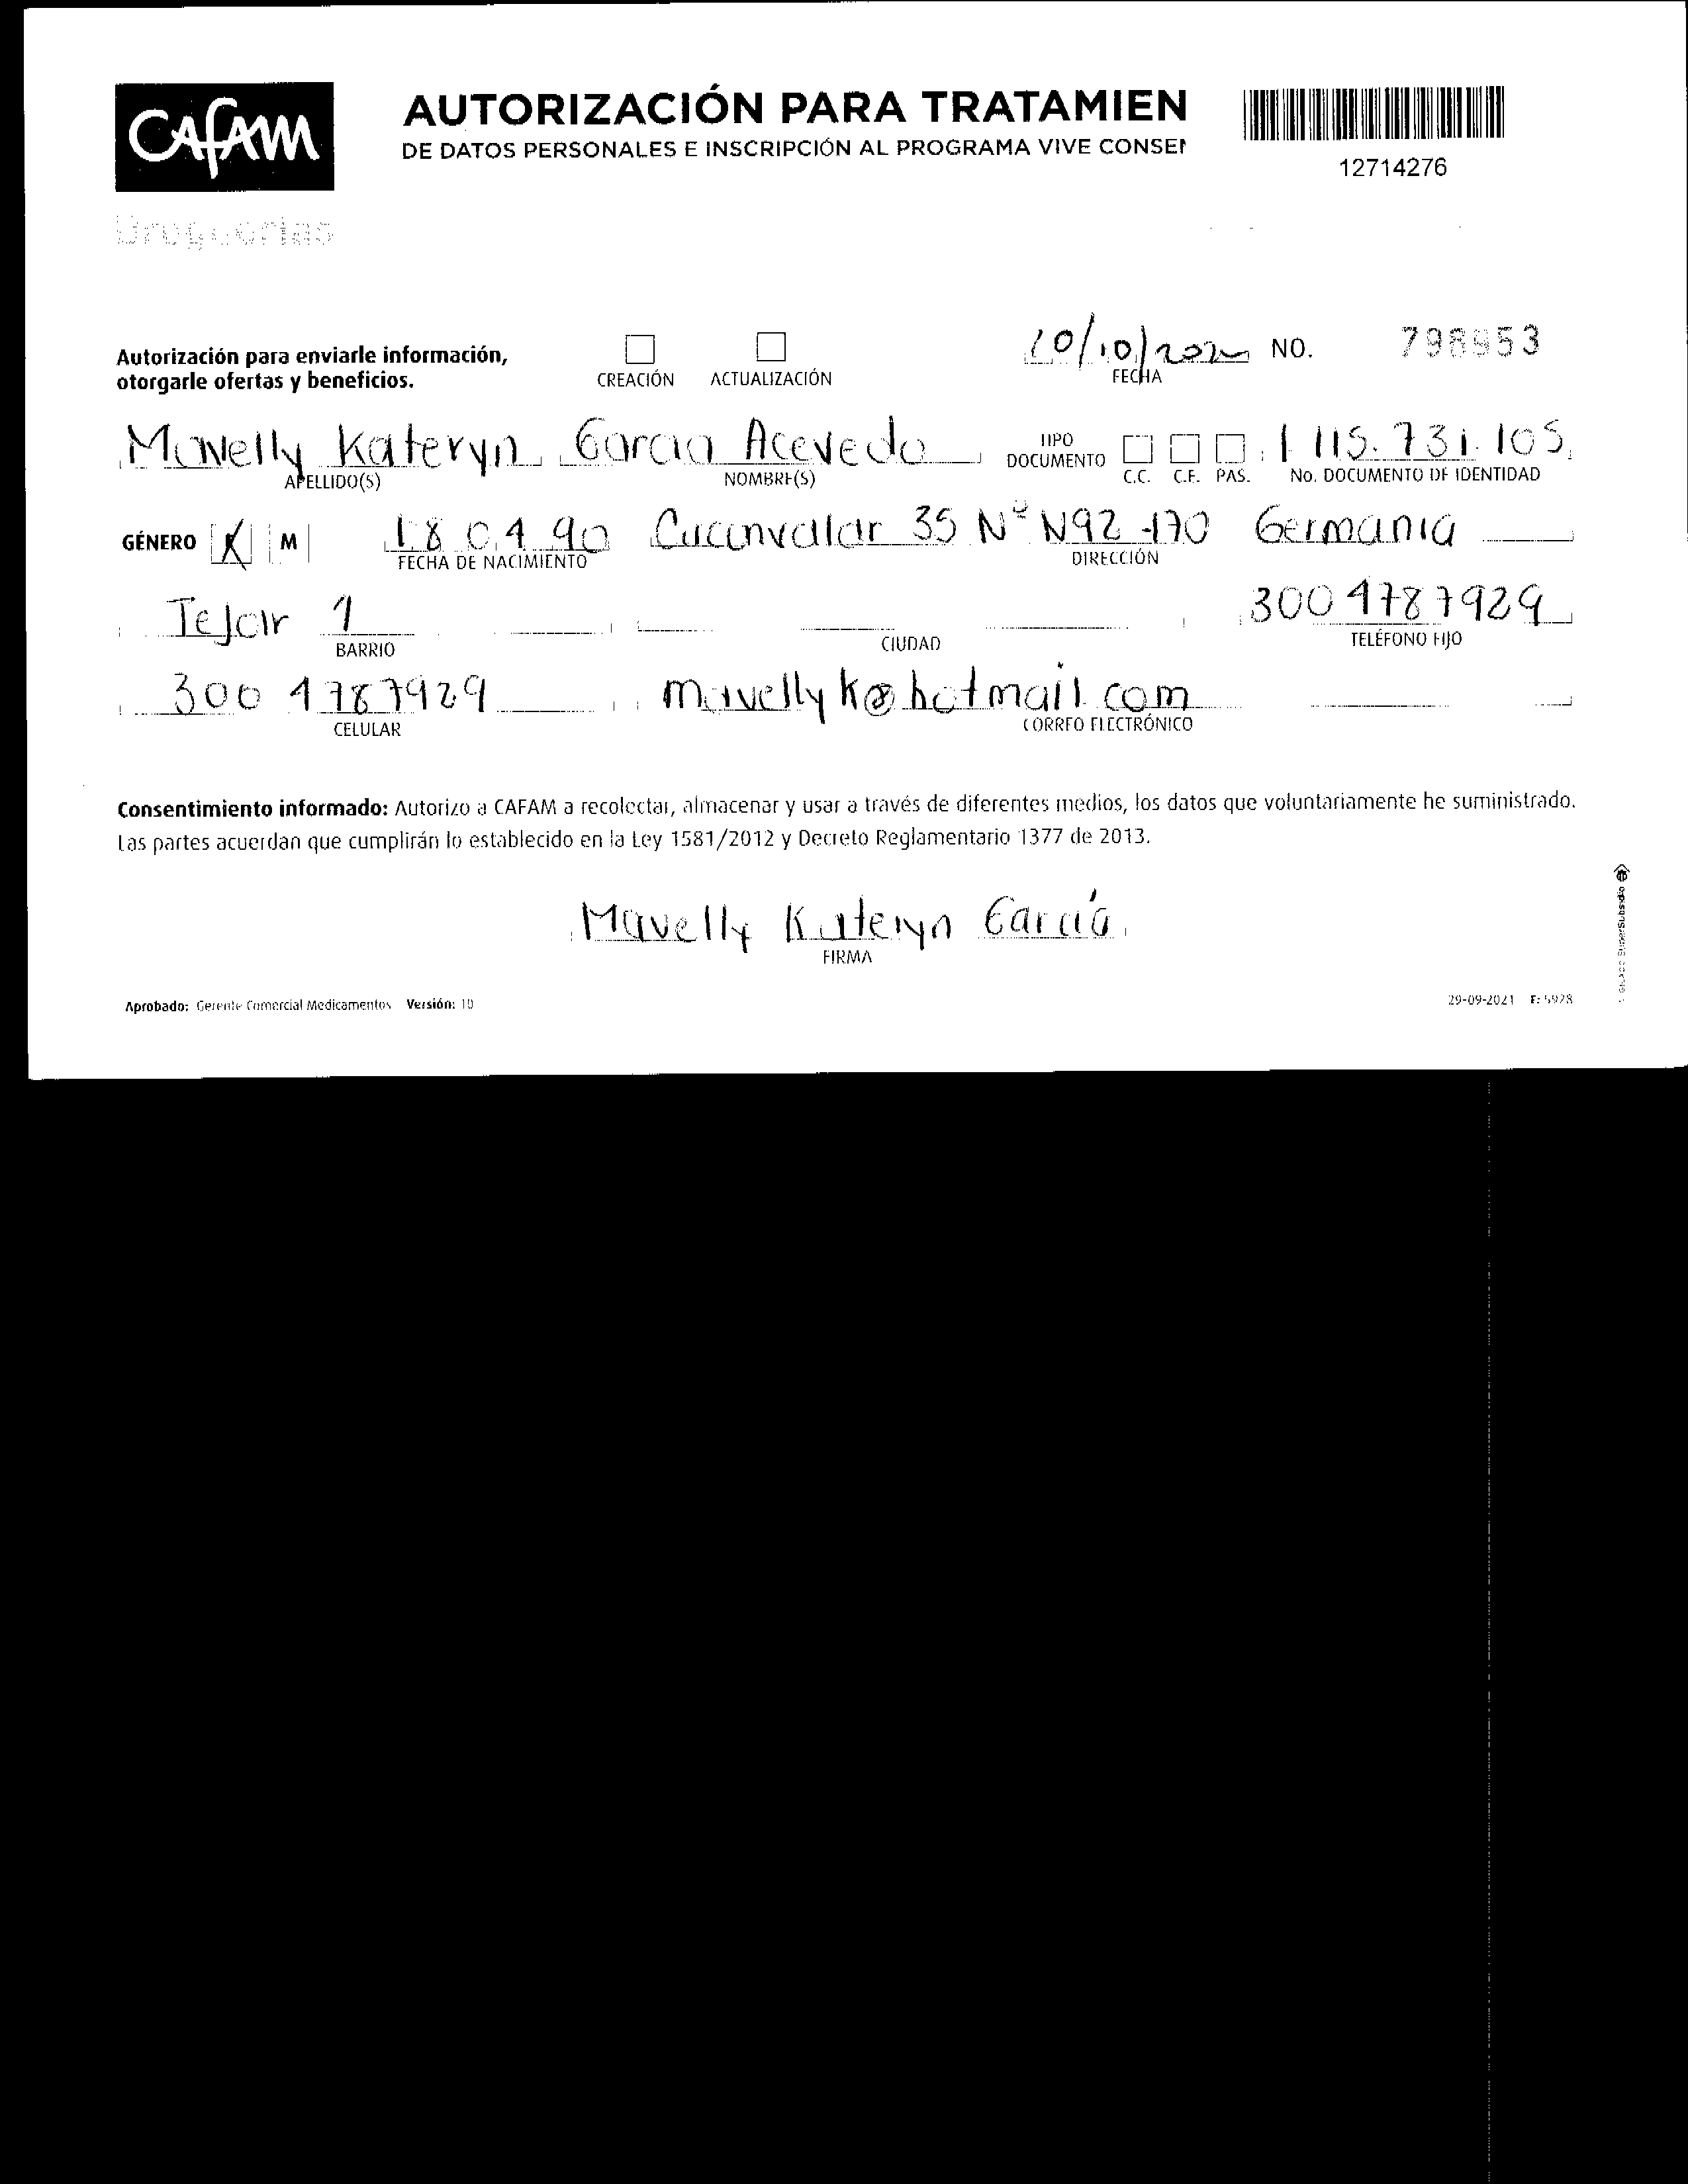 CAFAM
AUTORIZACIÓN PARA TRATAMIEN
DE DATOS PERSONALES E INSCRIPCIÓN AL PROGRAMA VIVE CONSEN
12714276
Droguerías
Autorización para enviarle información,
otorgarle ofertas y beneficios.
CREACIÓN ACTUALIZACIÓN
10/10/2022 NO. 798953
FECHA
Mavelly Kateryn Garcia Acevedo TIPO DOCUMENTO C.C. C.E. PAS. 1 115.731.105
APELLIDO(S) NOMBRE(S) No. DOCUMENTO DE IDENTIDAD
GÉNERO M 18 04 90 Circunvalar 35 Nº N92-170 Germania
FECHA DE NACIMIENTO DIRECCIÓN
Tejar 1 300 4787929
BARRIO CIUDAD TELÉFONO FIJO
300 4787929 mavellyk@hotmail.com
CELULAR CORREO ELECTRÓNICO
Consentimiento informado: Autorizo a CAFAM a recolectar, almacenar y usar a través de diferentes medios, los datos que voluntariamente he suministrado.
Las partes acuerdan que cumplirán lo establecido en la Ley 1581/2012 y Decreto Reglamentario 1377 de 2013.
Mavelly Kateryn García
FIRMA
Aprobado: Gerente Comercial Medicamentos Versión: 10
29-09-2021 F: 5928
SuperSubsidio